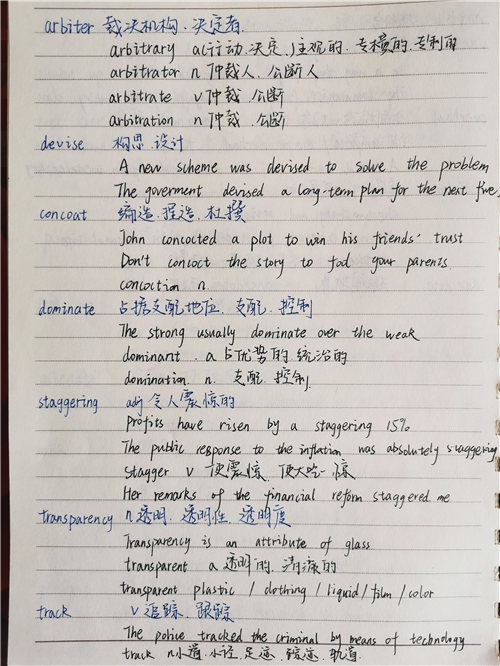 arbiter 裁决机构、决定者
arbitrary a(行动、决定、)主观的、专横的、专制的
arbitrator n 仲裁人、公断人
arbitrate v 仲裁、公断
arbitration n 仲裁、公断
devise 构思、设计
A new scheme was devised to solve the problem
The goverment devised a long-term plan for the next five
concoat 编造、捏造、杜撰
John concocted a plot to win his friends' trust
Don't concoct the story to fool your parents.
concoction n
dominate 占据支配地位、支配、控制
The strong usually dominate over the weak
dominant . a 占优势的、统治的
domination n. 支配、控制.
staggering adj 令人震惊的
profits have risen by a staggering 15%
The public response to the inflation was absolutely staggering
stagger v 使震惊、使大吃一惊
Her remarks of the financial reform staggered me
transparency n 透明、透明性、透明度
Transparency is an attribute of glass
transparent a 透明的、清澈的
transparent plastic / clothing / liquid / film / color
track v 追踪、跟踪
The police tracked the criminal by means of technology
track n 小道、小径、足迹、踪迹、轨道.